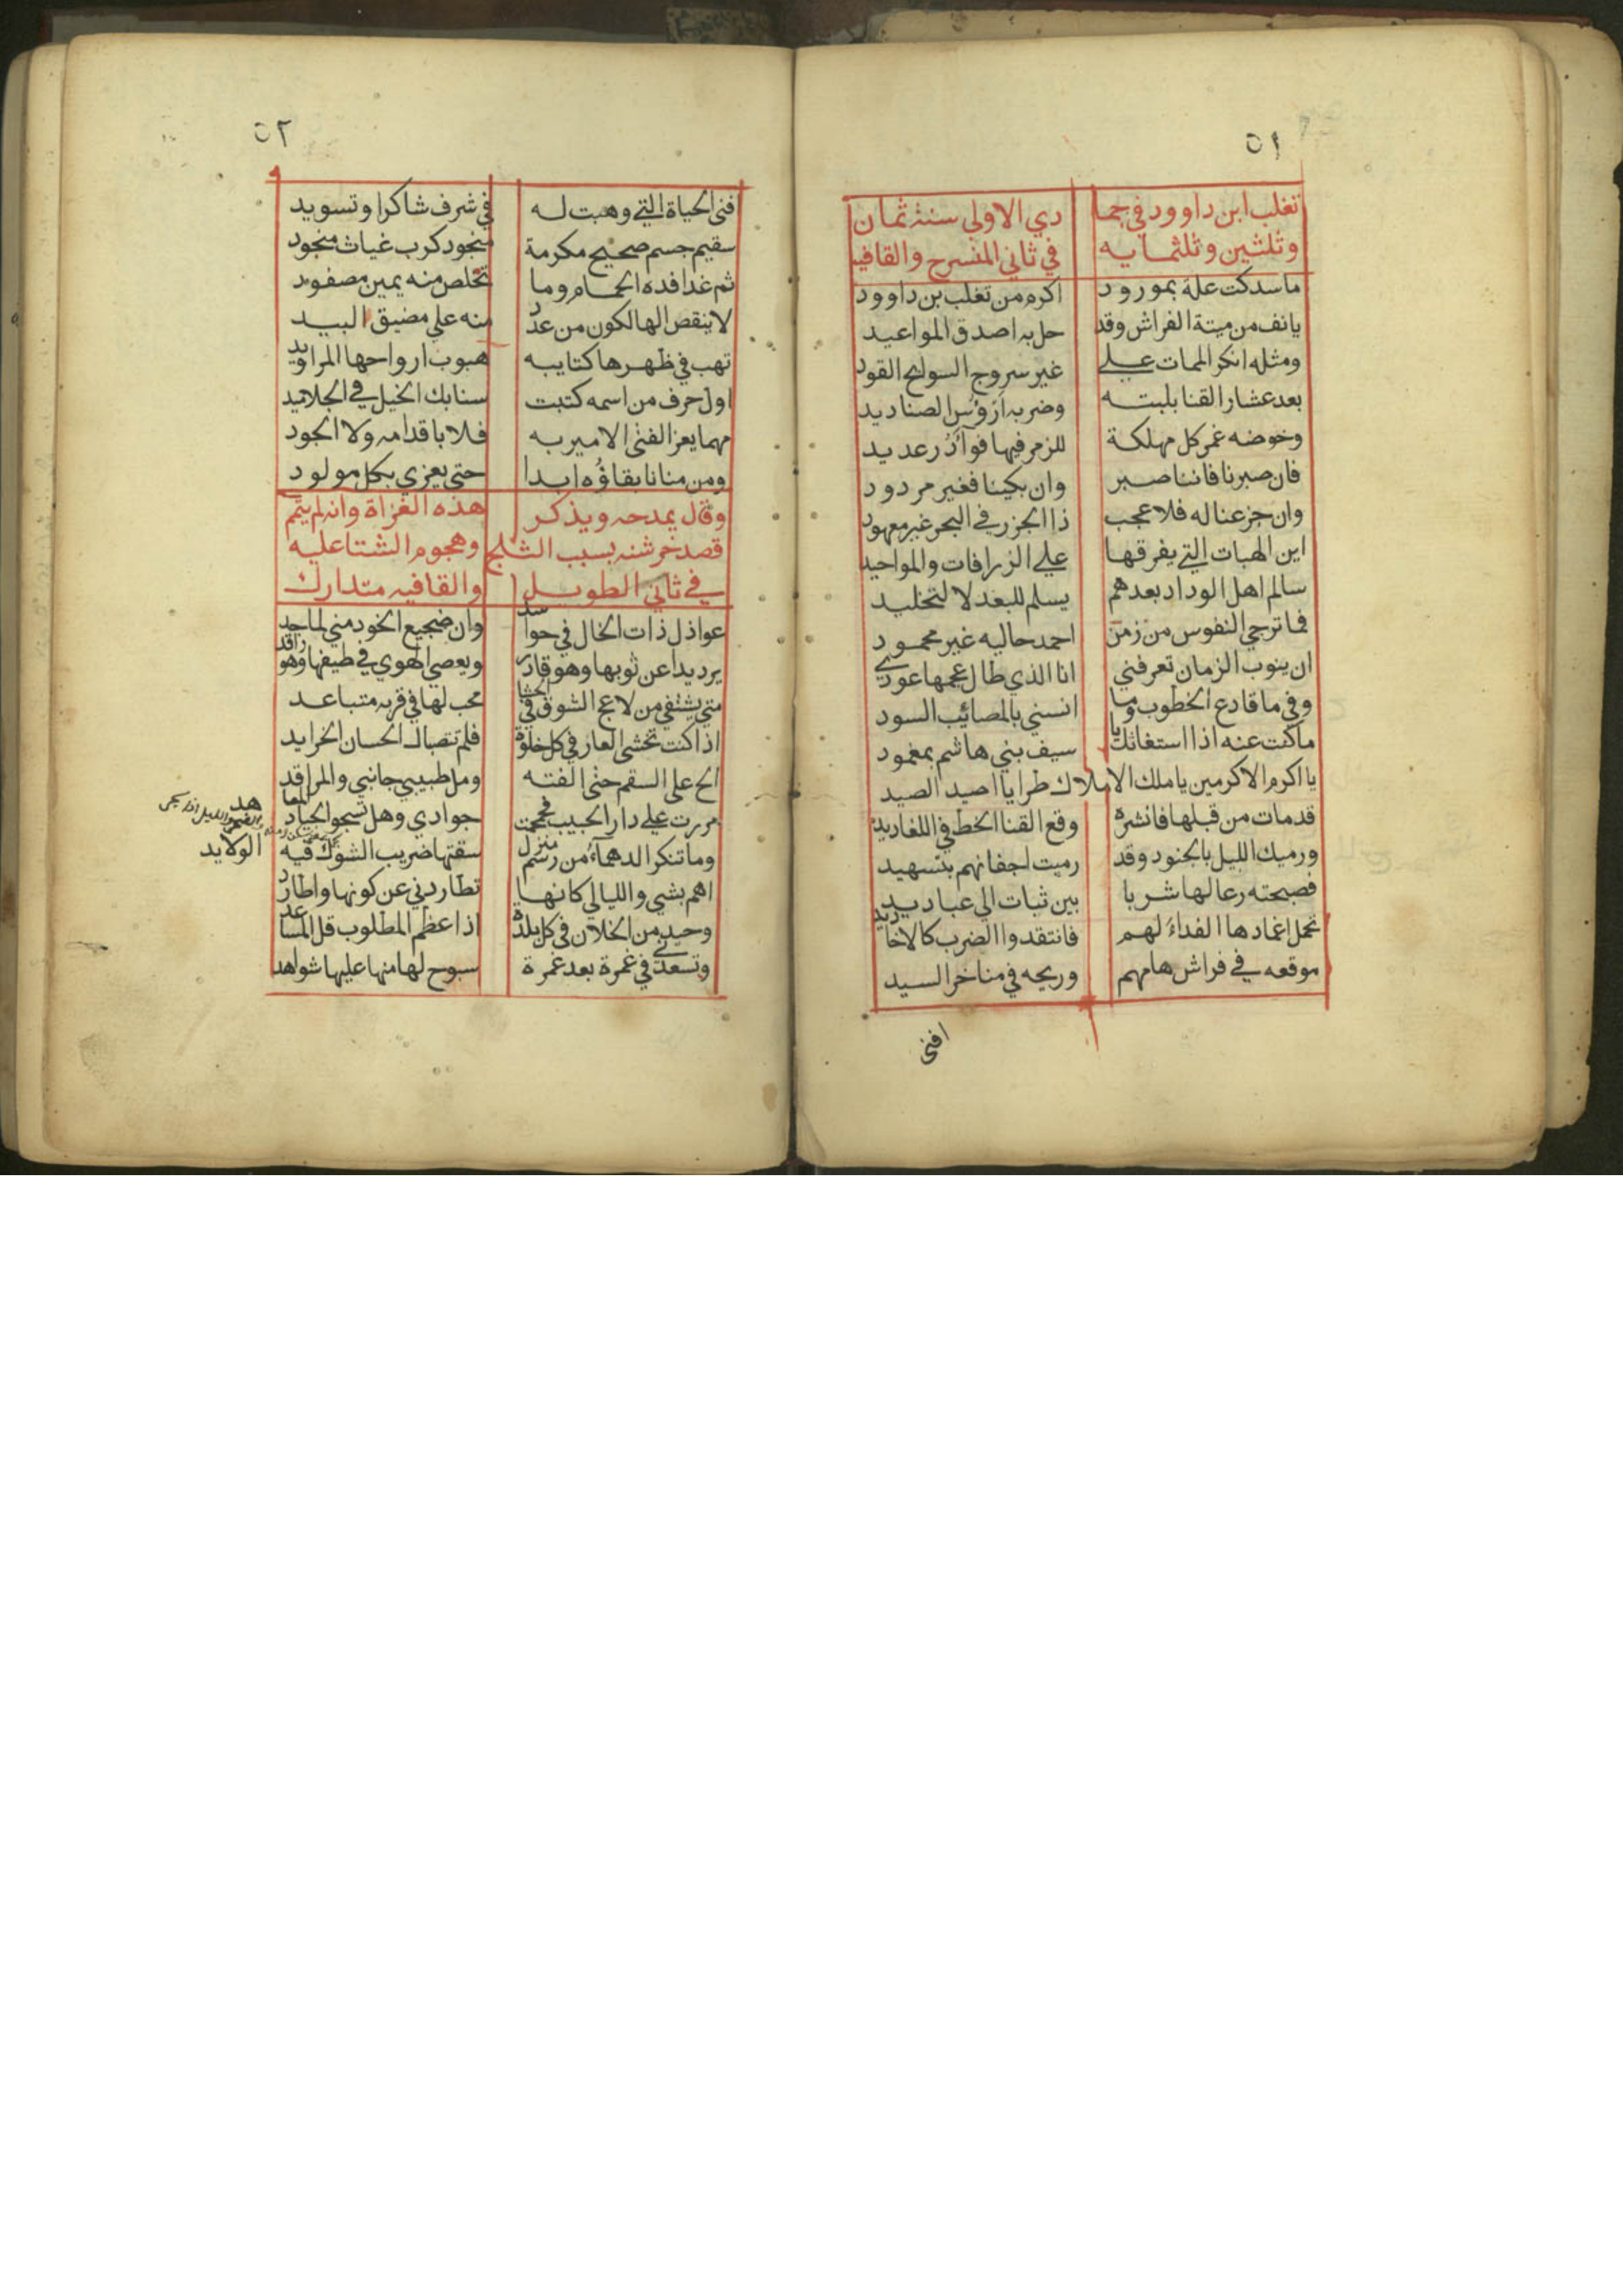 ٥١
تغلب ابن داوود في جما دي الاولى سنة ثمان
وثلثين وثلثمايه في ثاني المنسرح والقافيه
ما سدكت علة بمورود اكرم من تغلب بن داوود
يانف من ميتة الفراش وقد حل به اصدق المواعيد
ومثله انكر الممات علي غير سروج السوابح القود
بعد عشار القنا بلبته وضربه ارؤس الصناديد
وخوضه غمر كل مهلكة للزمر فيها فوآد رعديد
فان صبرنا فاننا صبر وان بكينا فغير مردود
وان جزعنا له فلا عجب ذا الجزر في البحر غير معهود
اين الهبات التي يفرقها علي الزرافات والمواحيد
سالم اهل الوداد بعدهم يسلم للبعد لا لتخليد
فما ترجي النفوس من زمن احمد حاليه غير محمود
ان ينوب الزمان تعرفني انا الذي طال عجمها عودي
وفي ما قادع الخطوب وما انسني بالمصائب السود
ما كنت عنه اذا استغاثك يا سيف بني هاشم بمغمود
يا اكرم الاكرمين يا ملك الاملاك طرا يا اصيد الصيد
قد مات من قبلها فانشره وقع القنا الخط في اللغاديد
ورميك الليل بالجنود وقد رميت اجفانهم بتسهيد
فصبحته رعالها شربا بين ثبات الي عباديد
تحمل اغمادها الفداء لهم فانتقدوا الضرب كالاخاديد
موقعه في فراش هامهم وريحه في مناخر السيد
افنى
٥٢
فنى الحياة التي وهبت له في شرف شاكرا وتسويد
سقيم جسم صحيح مكرمة منجود كرب غياث منجود
ثم غدا فده الحمام وما تخلص منه يمين مصفود
لا ينقص الهالكون من عدد منه علي مضيق البيد
تهب في ظهرها كتايبه هبوب ارواحها المراويد
اول حرف من اسمه كتبت سنابك الخيل في الجلاميد
مهما يعز الفتى الامير به فلا باقدامه ولا الجود
ومن منانا بقاؤه ابدا حتى يعزي بكل مولود
وقال يمدحه ويذكر هذه الغزاة وانه لم يتم
قصد خرشنه بسبب الثلج وهجوم الشتا عليه
في ثاني الطويل والقافيه متدارك
عواذل ذات الخال في حواسد وان ضجيع الخود مني لماجد
يرد يدا عن ثوبها وهو قادر ويعصي الهوي في طيفها وهو راقد
متي يشتفي من لاعج الشوق في الحشا محب لها في قربه متباعد
اذا كنت تخشى العار في كل خلوة فلم تتصباك الحسان الخرايد
الح على السقم حتى الفته ومل طبيبي جانبي والمراقد
مررت علي دار الحبيب فحمحمت جوادي وهل تشجو الجياد المعاهد
وما تنكر الدهماء من رسم منزل سقتها ضريب الشوك فيه
الولايد
اهم بشي والليالي كانها تطاردني عن كونها واطارد
وحيد من الخلان في كل بلدة اذا عظم المطلوب قل المساعد
وتسعدني في غمرة بعد غمرة سبوح لها منها عليها شواهد